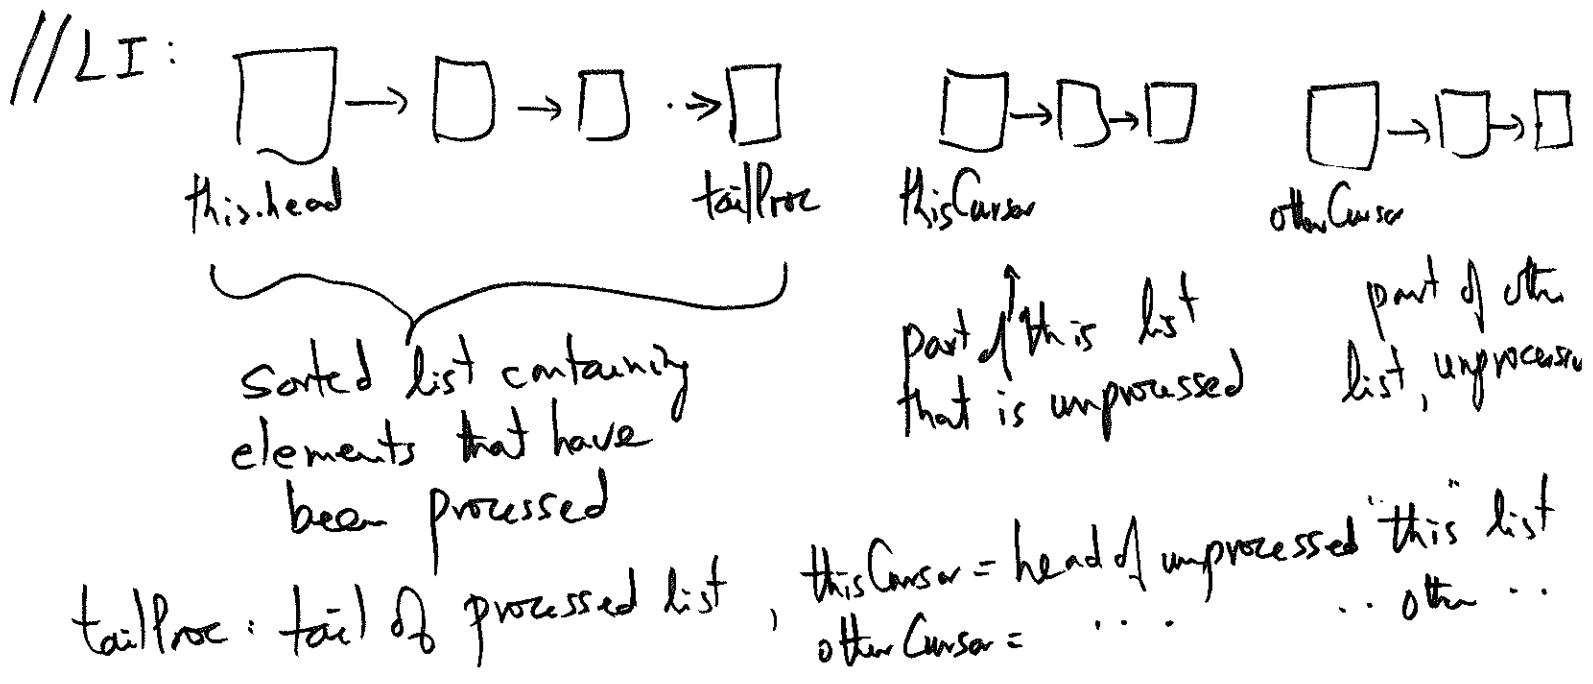 //LI:
this.head
tailProc
thisCursor
otherCursor
Sorted list containing
elements that have
been processed
part of this list
that is unprocessed
part of other
list,
tailProc : tail of processed list , thisCursor = head of unprocessed "this" list
otherCursor = .... .. other ..